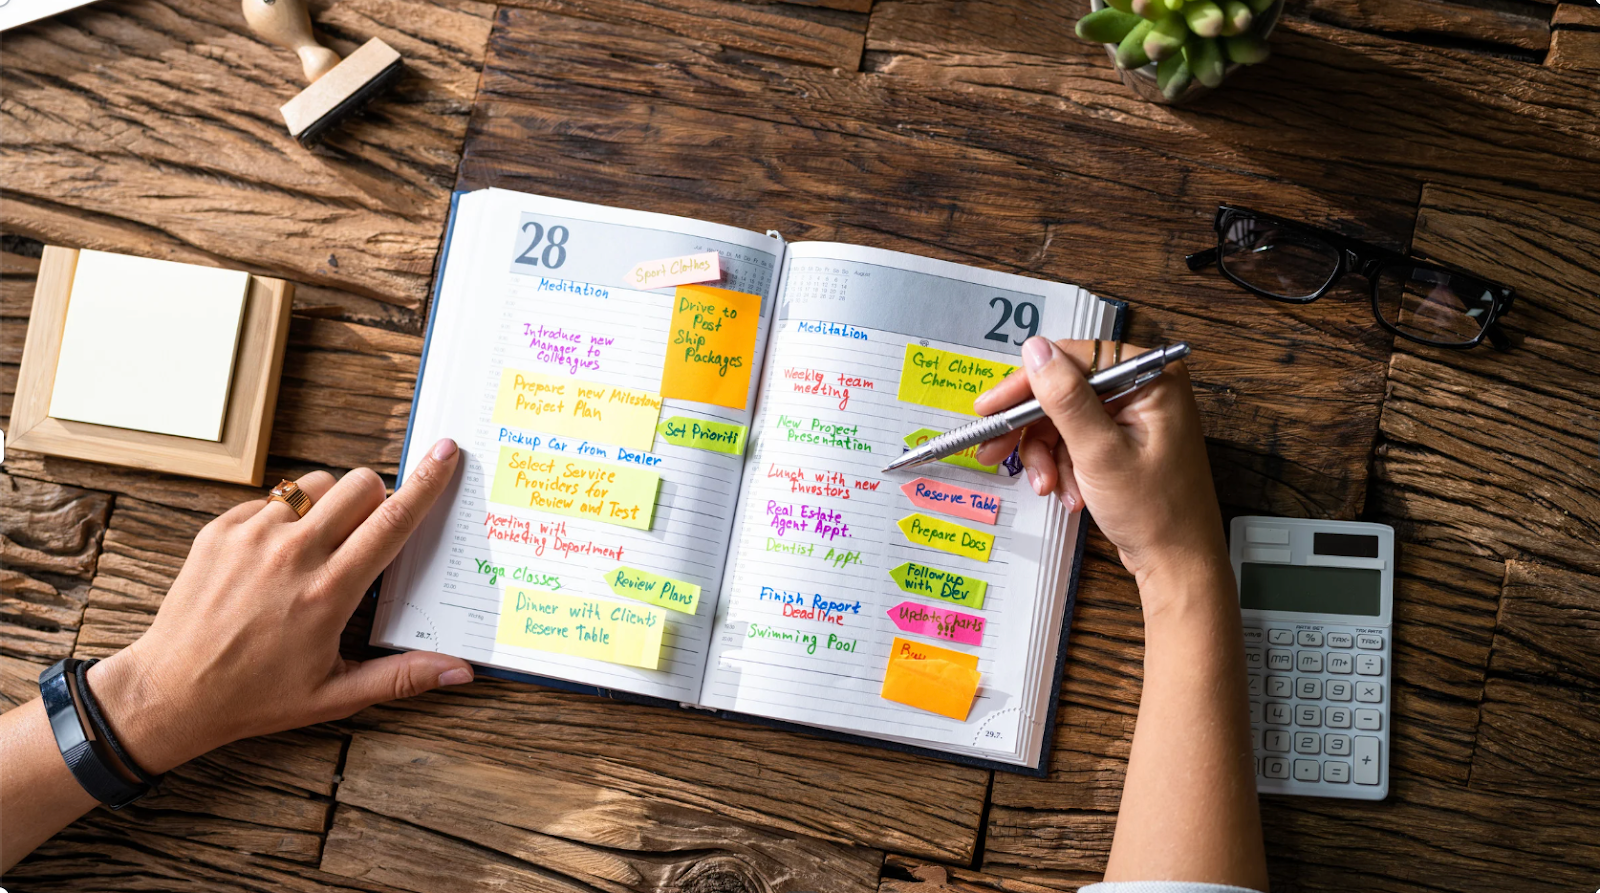 28
Sport Clothes
Meditation
Drive to
Post
Ship
Packages
Introduce new
Manager to
Colleagues
Prepare new Milestone
Project Plan
Set Prioriti
Pickup Car from Dealer
Select Service
Providers for
Review and Test
Meeting with
Marketing Department
Yoga Classes
Review Plans
Dinner with Clients
Reserve Table
28.7.
August
29
Meditation
Get Clothes f
Chemical
Weekly team
meeting
New Project
Presentation
Lunch with new
Investors
Reserve Table
Real Estate
Agent Appt.
Prepare Docs
Dentist Appt.
Follow up
with Dev
Finish Report
Deadline
Update Charts
!!!
Swimming Pool
29.7.
√ % TAX- TAX+
MR M- M+ ÷
7 8 9 ×
4 5 6 −
1 2 3 +
0 . =